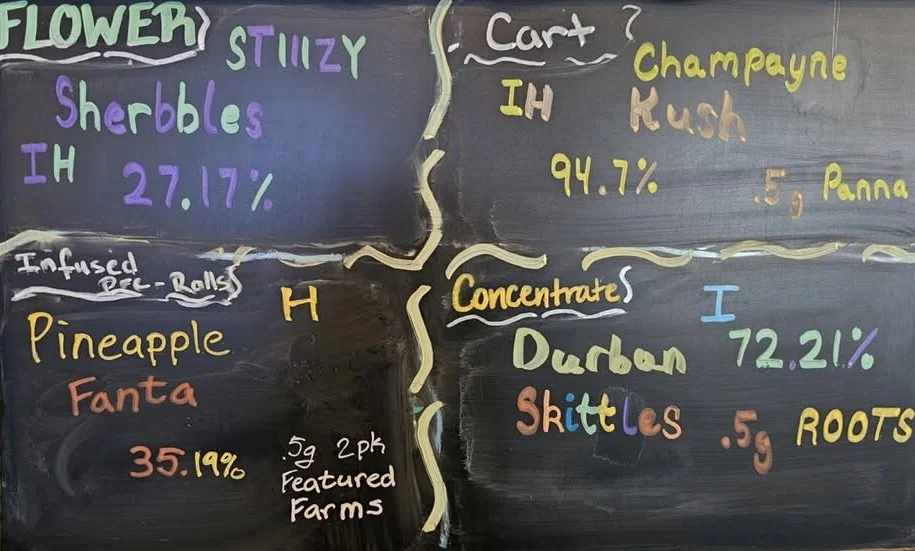 FLOWER
STIIIZY
Sherbbles
IH
27.17%
Cart
Champayne
IH Kush
94.7%
.5g Panna
Infused
Pre-Rolls
H
Pineapple
Fanta
35.19%
.5g 2pk
Featured
Farms
Concentrates
I
Durban 72.21%
Skittles
.5g ROOTS